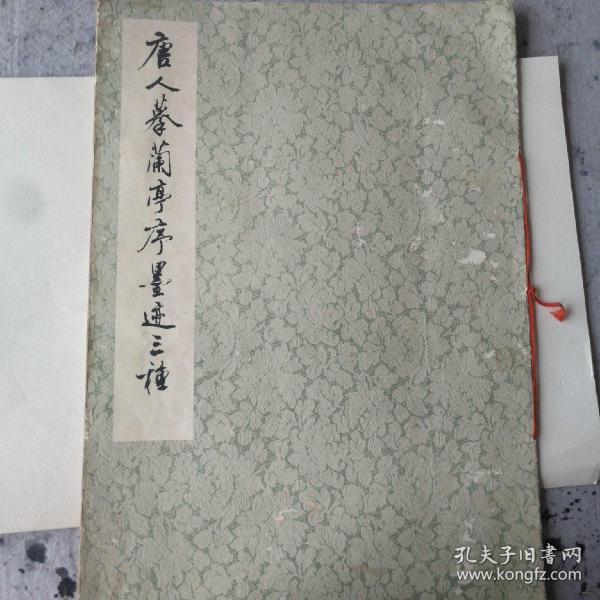 唐人摹蘭亭序墨迹三種
孔夫子旧書网
www.kongfz.com